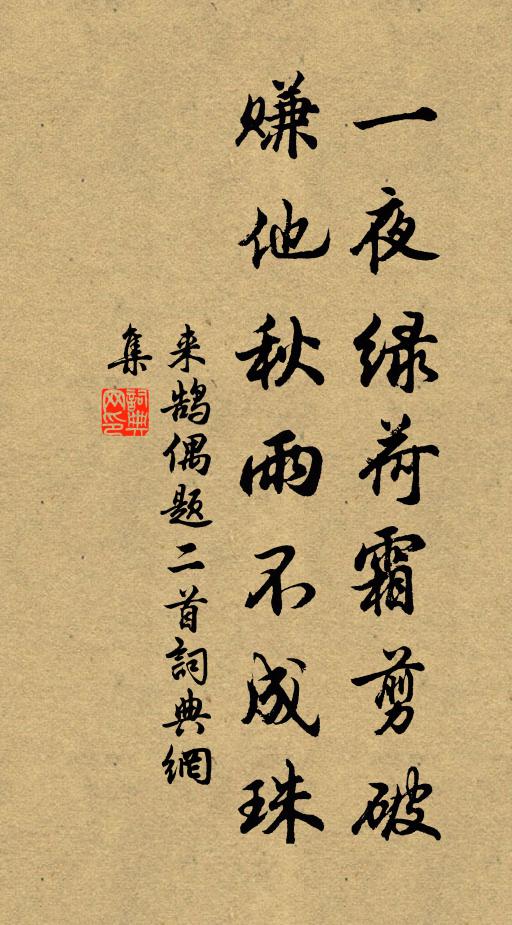 一夜绿荷霜剪破
赚他秋雨不成珠
来鹄偶题二首詞典網
集
詞典网印